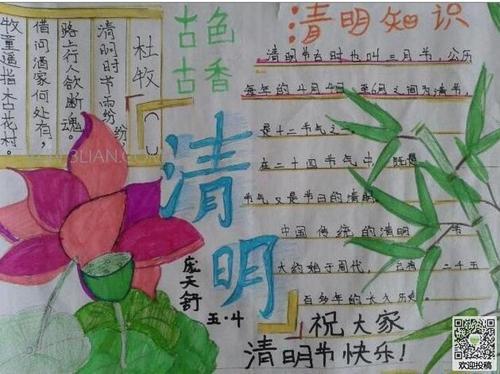 古色
古香
杜牧
清明时节雨纷纷,
路上行人欲断魂
借问酒家何处有,
牧童遥指杏花村。
清明
庞天舒
五·4
清明知识
清明节古时也叫三月节,公历
每年的4月4日 至6日之间为清节,
是二十四节气之
在二十四节气中
节气又是节日的清明
中国传统的清明 节
大约始于周代,
百多年的
祝大家
清明节快乐!
欢迎投稿